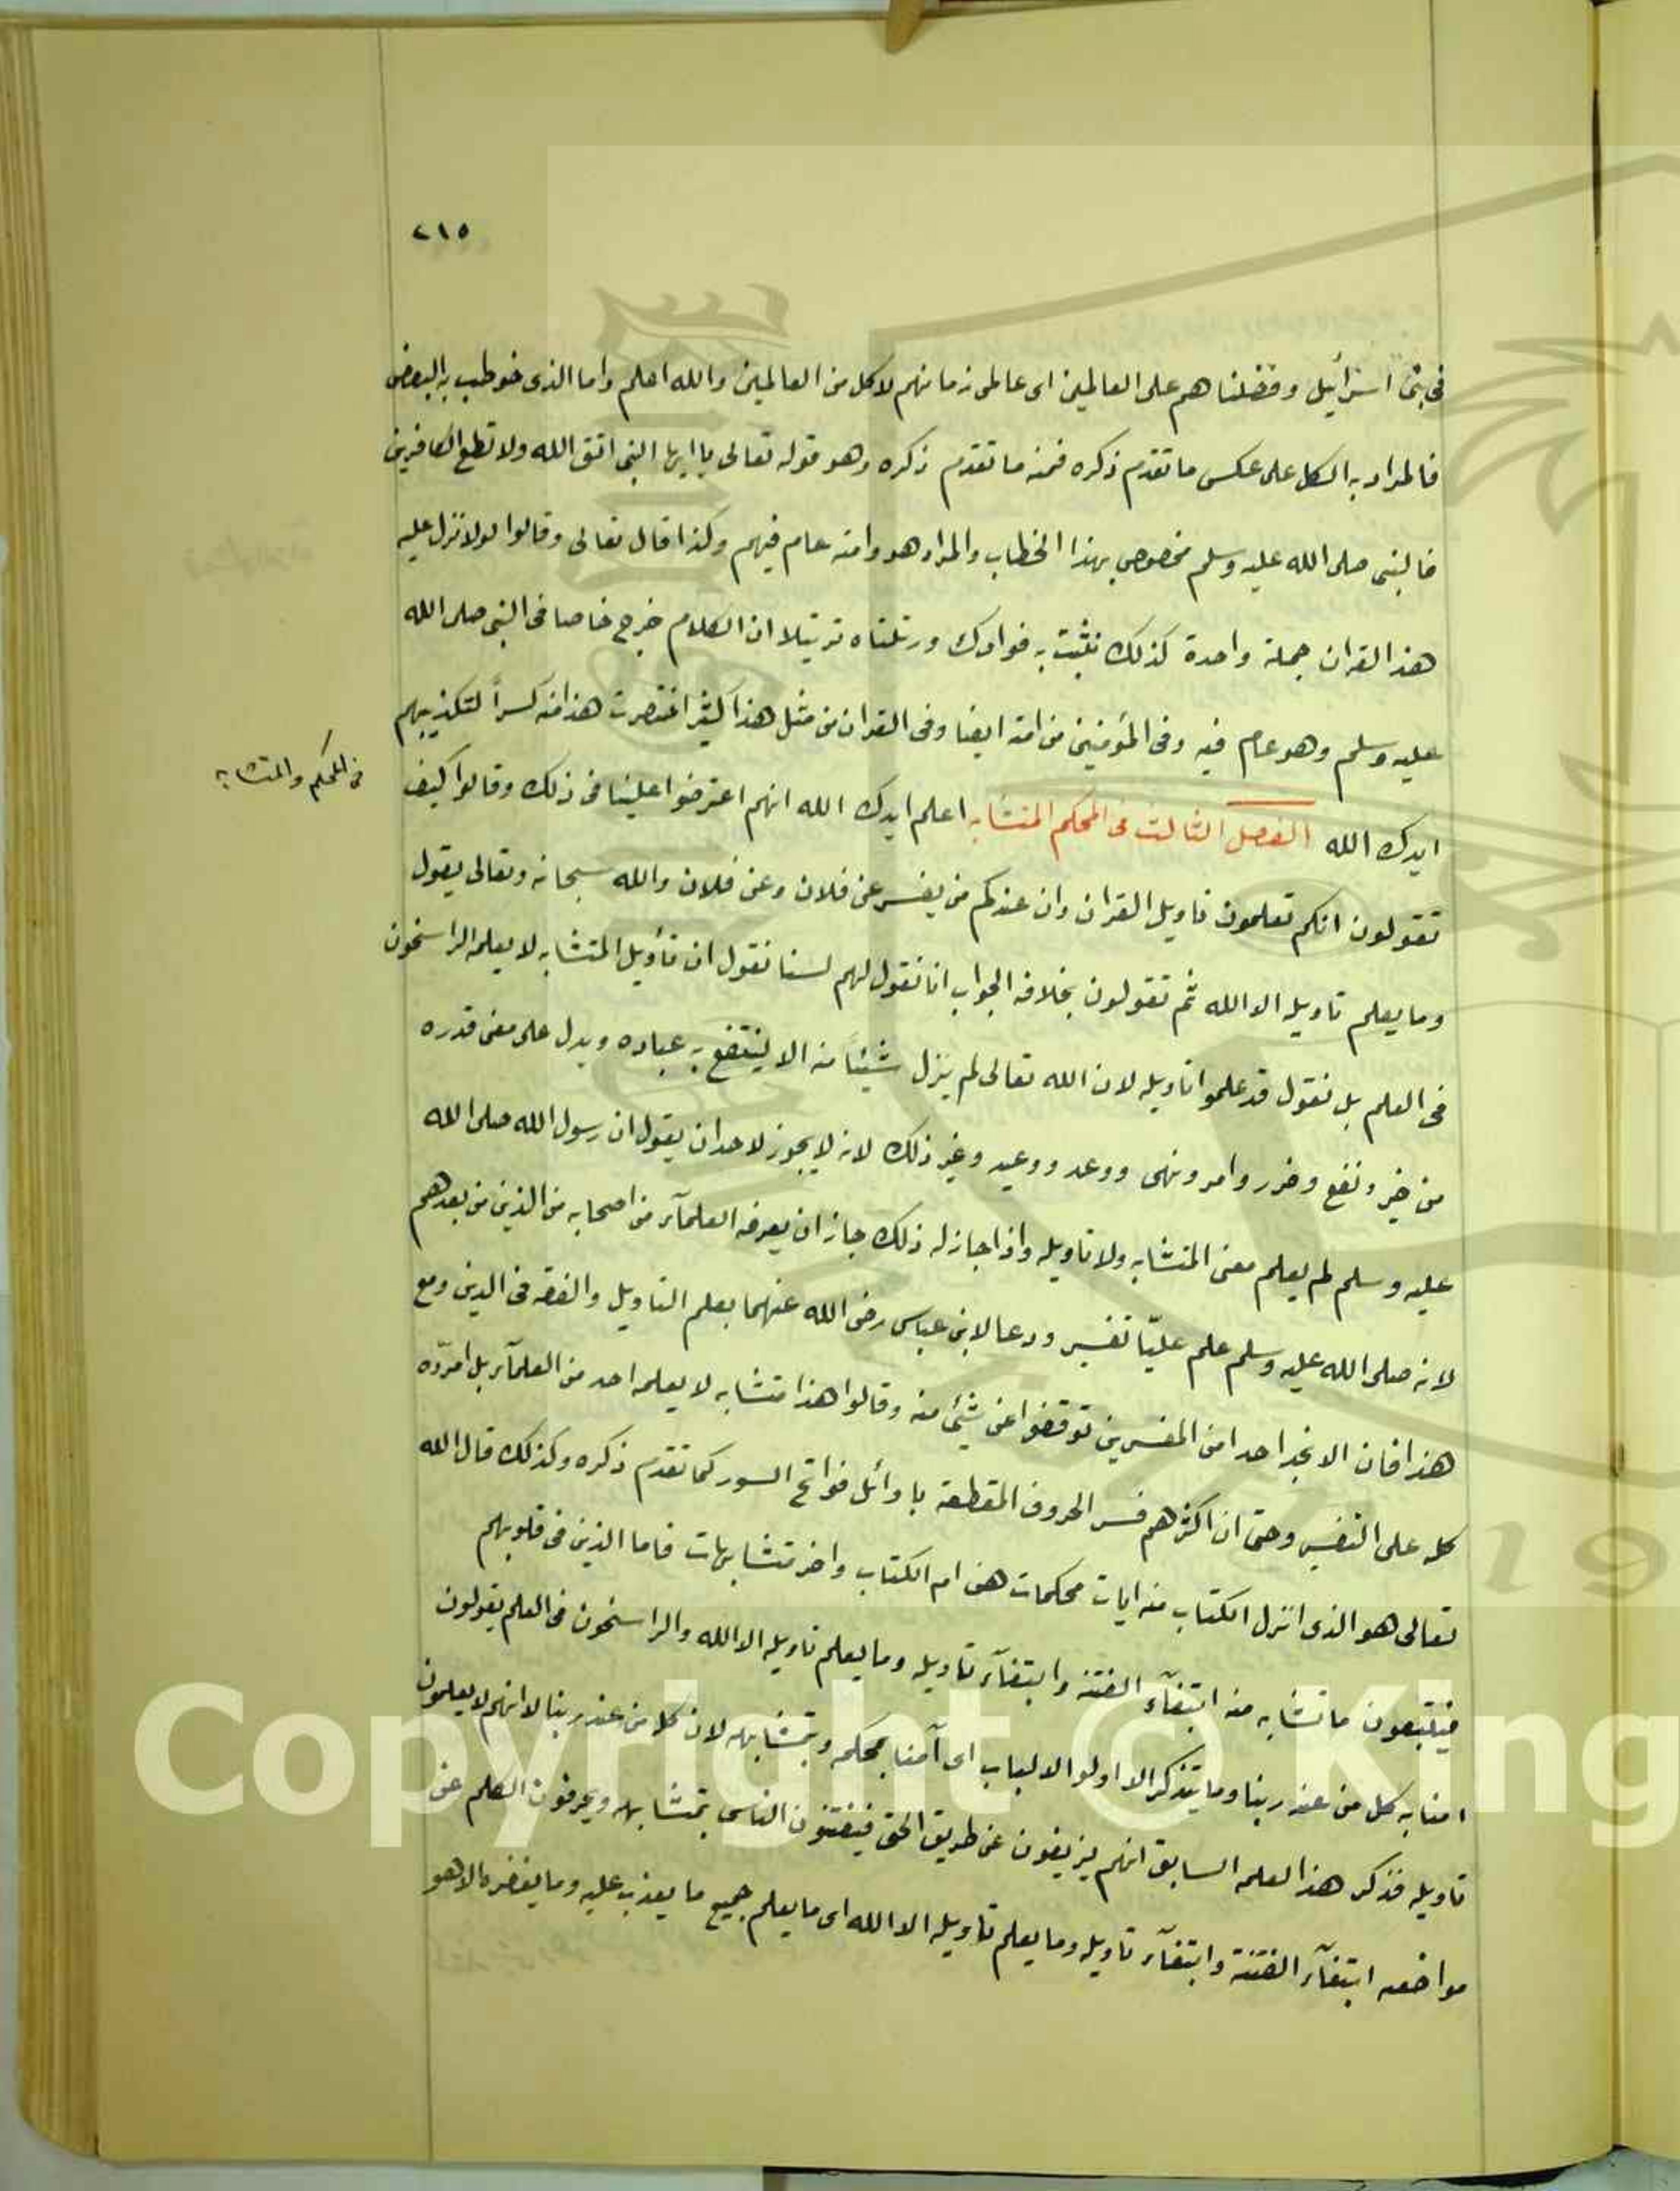 ٢١٥
فى بنى اسرأئيل وفضلناهم على العالمين اى عالمى زمانهم لا كل من العالمين والله اعلم واما الذى خوطب به البعض
فالمراد به الكل على عكس ما تقدم ذكره فمنه ما تقدم ذكره وهو قوله تعالى يا ايها النبى اتق الله ولا تطع الكافرين
فالنبى صلى الله عليه وسلم مخصوص بهذا الخطاب والمراد هو وامته عام فيهم وكذا قال تعالى وقالوا لولا نزل عليه
هذ القران جملة واحدة كذلك نثبت به فوادك ورتلناه ترتيلا ان الكلام خرج خاصا فى النبى صلى الله
عليه وسلم وهو عام فيه وفى المؤمنين من امته ايضا وفى القران من مثل هذا كثير اختصرت هذا منه كسراً لتكذيبهم
ايدك الله الفصل الثالث فى المحكم المتشابه اعلم ايدك الله انهم اعترضوا علينا فى ذلك وقالوا كيف
فى المحكم والمتشابه
تقولون انكم تعلمون تاويل القران وان عندكم من يفسر عن فلان وعن فلان والله سبحانه وتعالى يقول
وما يعلم تاويله الا الله ثم تقولون بخلافه الجواب انا نقول لهم لسنا نقول ان تأويل المتشابه لا يعلمه الراسخون
فى العلم بل نقول قد علموا تاويله لان الله تعالى لم ينزل شيئاً منه الا لينتفع به عباده ويدل على معنى قدره
من خير ونفع وضرر وامر ونهى ووعد ووعيد وغير ذلك لانه لا يجوز لاحد ان يقول ان رسول الله صلى الله
عليه وسلم لم يعلم معنى المتشابه ولا تاويله واذا جاز له ذلك جاز ان يعرفه العلمآء من اصحابه من الذين من بعدهم
لانه صلى الله عليه وسلم علم عليّا تفسير ودعا لابن عباس رضى الله عنهما بعلم التاويل والفقه فى الدين ومع
هذا فان الا نجد احدا من المفسرين توقفوا عن شيئ منه وقالوا هذا متشابه لا يعلمه احد من العلمآء بل امرّده
كله على التفسير وحتى ان اكثرهم فسر الحروف المقطعة باوائل فواتح السور كما تقدم ذكره وكذلك قال الله
تعالى هو الذى انزل الكتاب منه ايات محكمات هن ام الكتاب واخر متشابهات فاما الذين فى قلوبهم
فيتبعون ما تشابه منه ابتغآء الفتنه وابتغآء تاويله وما يعلم تاويله الا الله والراسخون فى العلم يقولون
امنا به كل من عند ربنا وما يتذكر الا اولوا الالباب اى آمنا بمحكمه وبمتشابهه لان كلا من عند ربنا لا انهم لا يعلمون
تاويله فذكر هذا لعلمه السابق انهم يزيغون عن طريق الحق فيفتنون الناس بمتشابهه ويحرفون الكلم عن
مواضعه ابتغآء الفتنة وابتغآء تاويله وما يعلم تاويله الا الله اى ما يعلم جميع ما يعذب عليه وما يغفره الا هو
Copyright © King
19